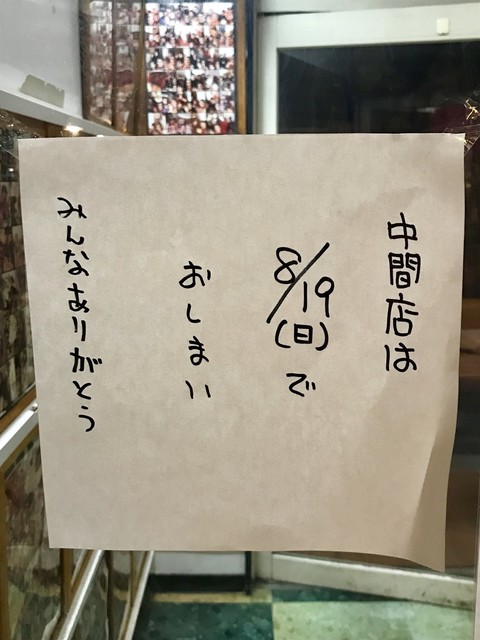 中間店は
8/19(日)で
おしまい
みんなありがとう